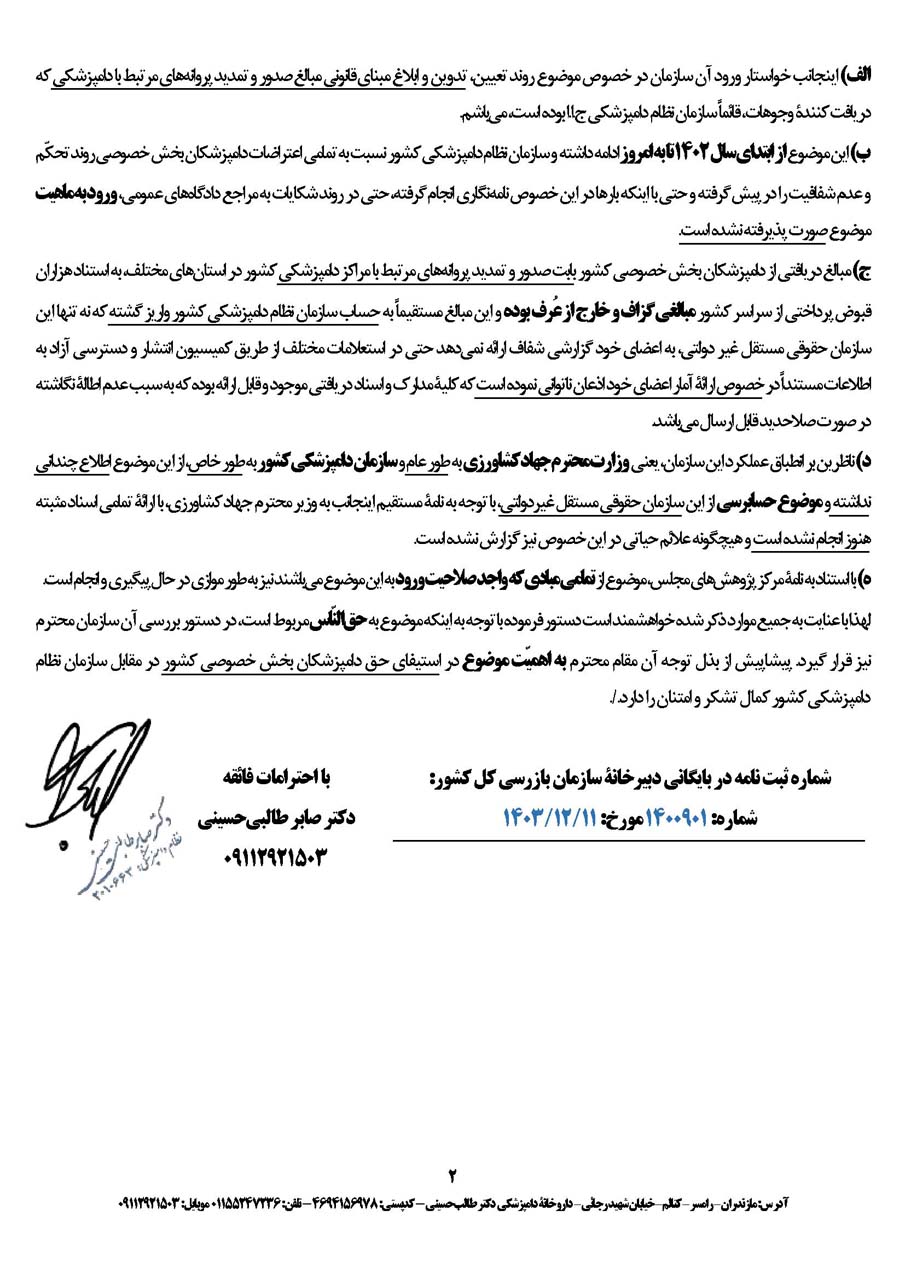 الف) اینجانب خواستار ورود آن سازمان در خصوص موضوع روند تعیین، تدوین و ابلاغ مبنای قانونی مبالغ صدور و تمدید پروانه‌های مرتبط با دامپزشکی که
دریافت کنندهٔ وجوهات، قائماً سازمان نظام دامپزشکی ج.ا.ا بوده است، می‌باشم.
ب) این موضوع از ابتدای سال ۱۴۰۲ تا به امروز ادامه داشته و سازمان نظام دامپزشکی کشور نسبت به تمامی اعتراضات دامپزشکان بخش خصوصی روند تحکّم
و عدم شفافیت را در پیش گرفته و حتی با اینکه بارها در این خصوص نامه‌نگاری انجام گرفته، حتی در روند شکایات به مراجع دادگاه‌های عمومی، ورود به ماهیت
موضوع صورت پذیرفته نشده است.
ج) مبالغ دریافتی از دامپزشکان بخش خصوصی کشور بابت صدور و تمدید پروانه‌های مرتبط با مراکز دامپزشکی کشور در استان‌های مختلف، به استناد هزاران
قبوض پرداختی از سراسر کشور مبالغی گزاف و خارج از عُرف بوده و این مبالغ مستقیماً به حساب سازمان نظام دامپزشکی کشور واریز گشته که نه تنها این
سازمان حقوقی مستقل غیر دولتی، به اعضای خود گزارشی شفاف ارائه نمی‌دهد حتی در استعلامات مختلف از طریق کمیسیون انتشار و دسترسی آزاد به
اطلاعات مستنداً در خصوص ارائهٔ آمار اعضای خود اذعان ناتوانی نموده است که کلیهٔ مدارک و اسناد دریافتی موجود و قابل ارائه بوده که به سبب عدم اطالهٔ نگاشته
در صورت صلاحدید قابل ارسال می‌باشد.
د) ناظر بن بر انطباق عملکرد این سازمان، یعنی وزارت محترم جهاد کشاورزی به طور عام و سازمان دامپزشکی کشور به طور خاص، از این موضوع اطلاع چندانی
نداشته و موضوع حسابرسی از این سازمان حقوقی مستقل غیردولتی، با توجه به نامهٔ مستقیم اینجانب به وزیر محترم جهاد کشاورزی، با ارائهٔ تمامی اسناد مثبته
هنوز انجام نشده است و هیچگونه علائم حیاتی در این خصوص نیز گزارش نشده است.
ه) با استناد به نامهٔ مرکز پژوهش‌های مجلس، موضوع از تمامی مبادی که واجد صلاحیت ورود به این موضوع می‌باشند نیز به طور موازی در حال پیگیری و انجام است.
لهذا با عنایت به جمیع موارد ذکر شده خواهشمند است دستور فرموده با توجه به اینکه موضوع به حق‌النّاس مربوط است، در دستور بررسی آن سازمان محترم
نیز قرار گیرد. پیشاپیش از بذل توجه آن مقام محترم به اهمیّت موضوع در استیفای حق دامپزشکان بخش خصوصی کشور در مقابل سازمان نظام
دامپزشکی کشور کمال تشکر و امتنان را دارد./.
شماره ثبت نامه در بایگانی دبیرخانهٔ سازمان بازرسی کل کشور:
شماره: ۱۴۰۰۹۰۱ مورخ: ۱۴۰۳/۱۲/۱۱
با احترامات فائقه
دکتر صابر طالبی‌حسینی
۰۹۱۱۲۹۲۱۵۰۳
دکتر صابر طالبی حسینی
نظام دامپزشکی: ۲۰۱۰۶۶۳
۲
آدرس: مازندران – رامسر – کتالم – خیابان شهید رجائی – داروخانهٔ دامپزشکی دکتر طالب‌حسینی – کدپستی: ۴۶۹۴۱۵۶۹۷۸ – تلفن: ۰۱۱۵۵۲۴۷۲۳۶ موبایل: ۰۹۱۱۲۹۲۱۵۰۳